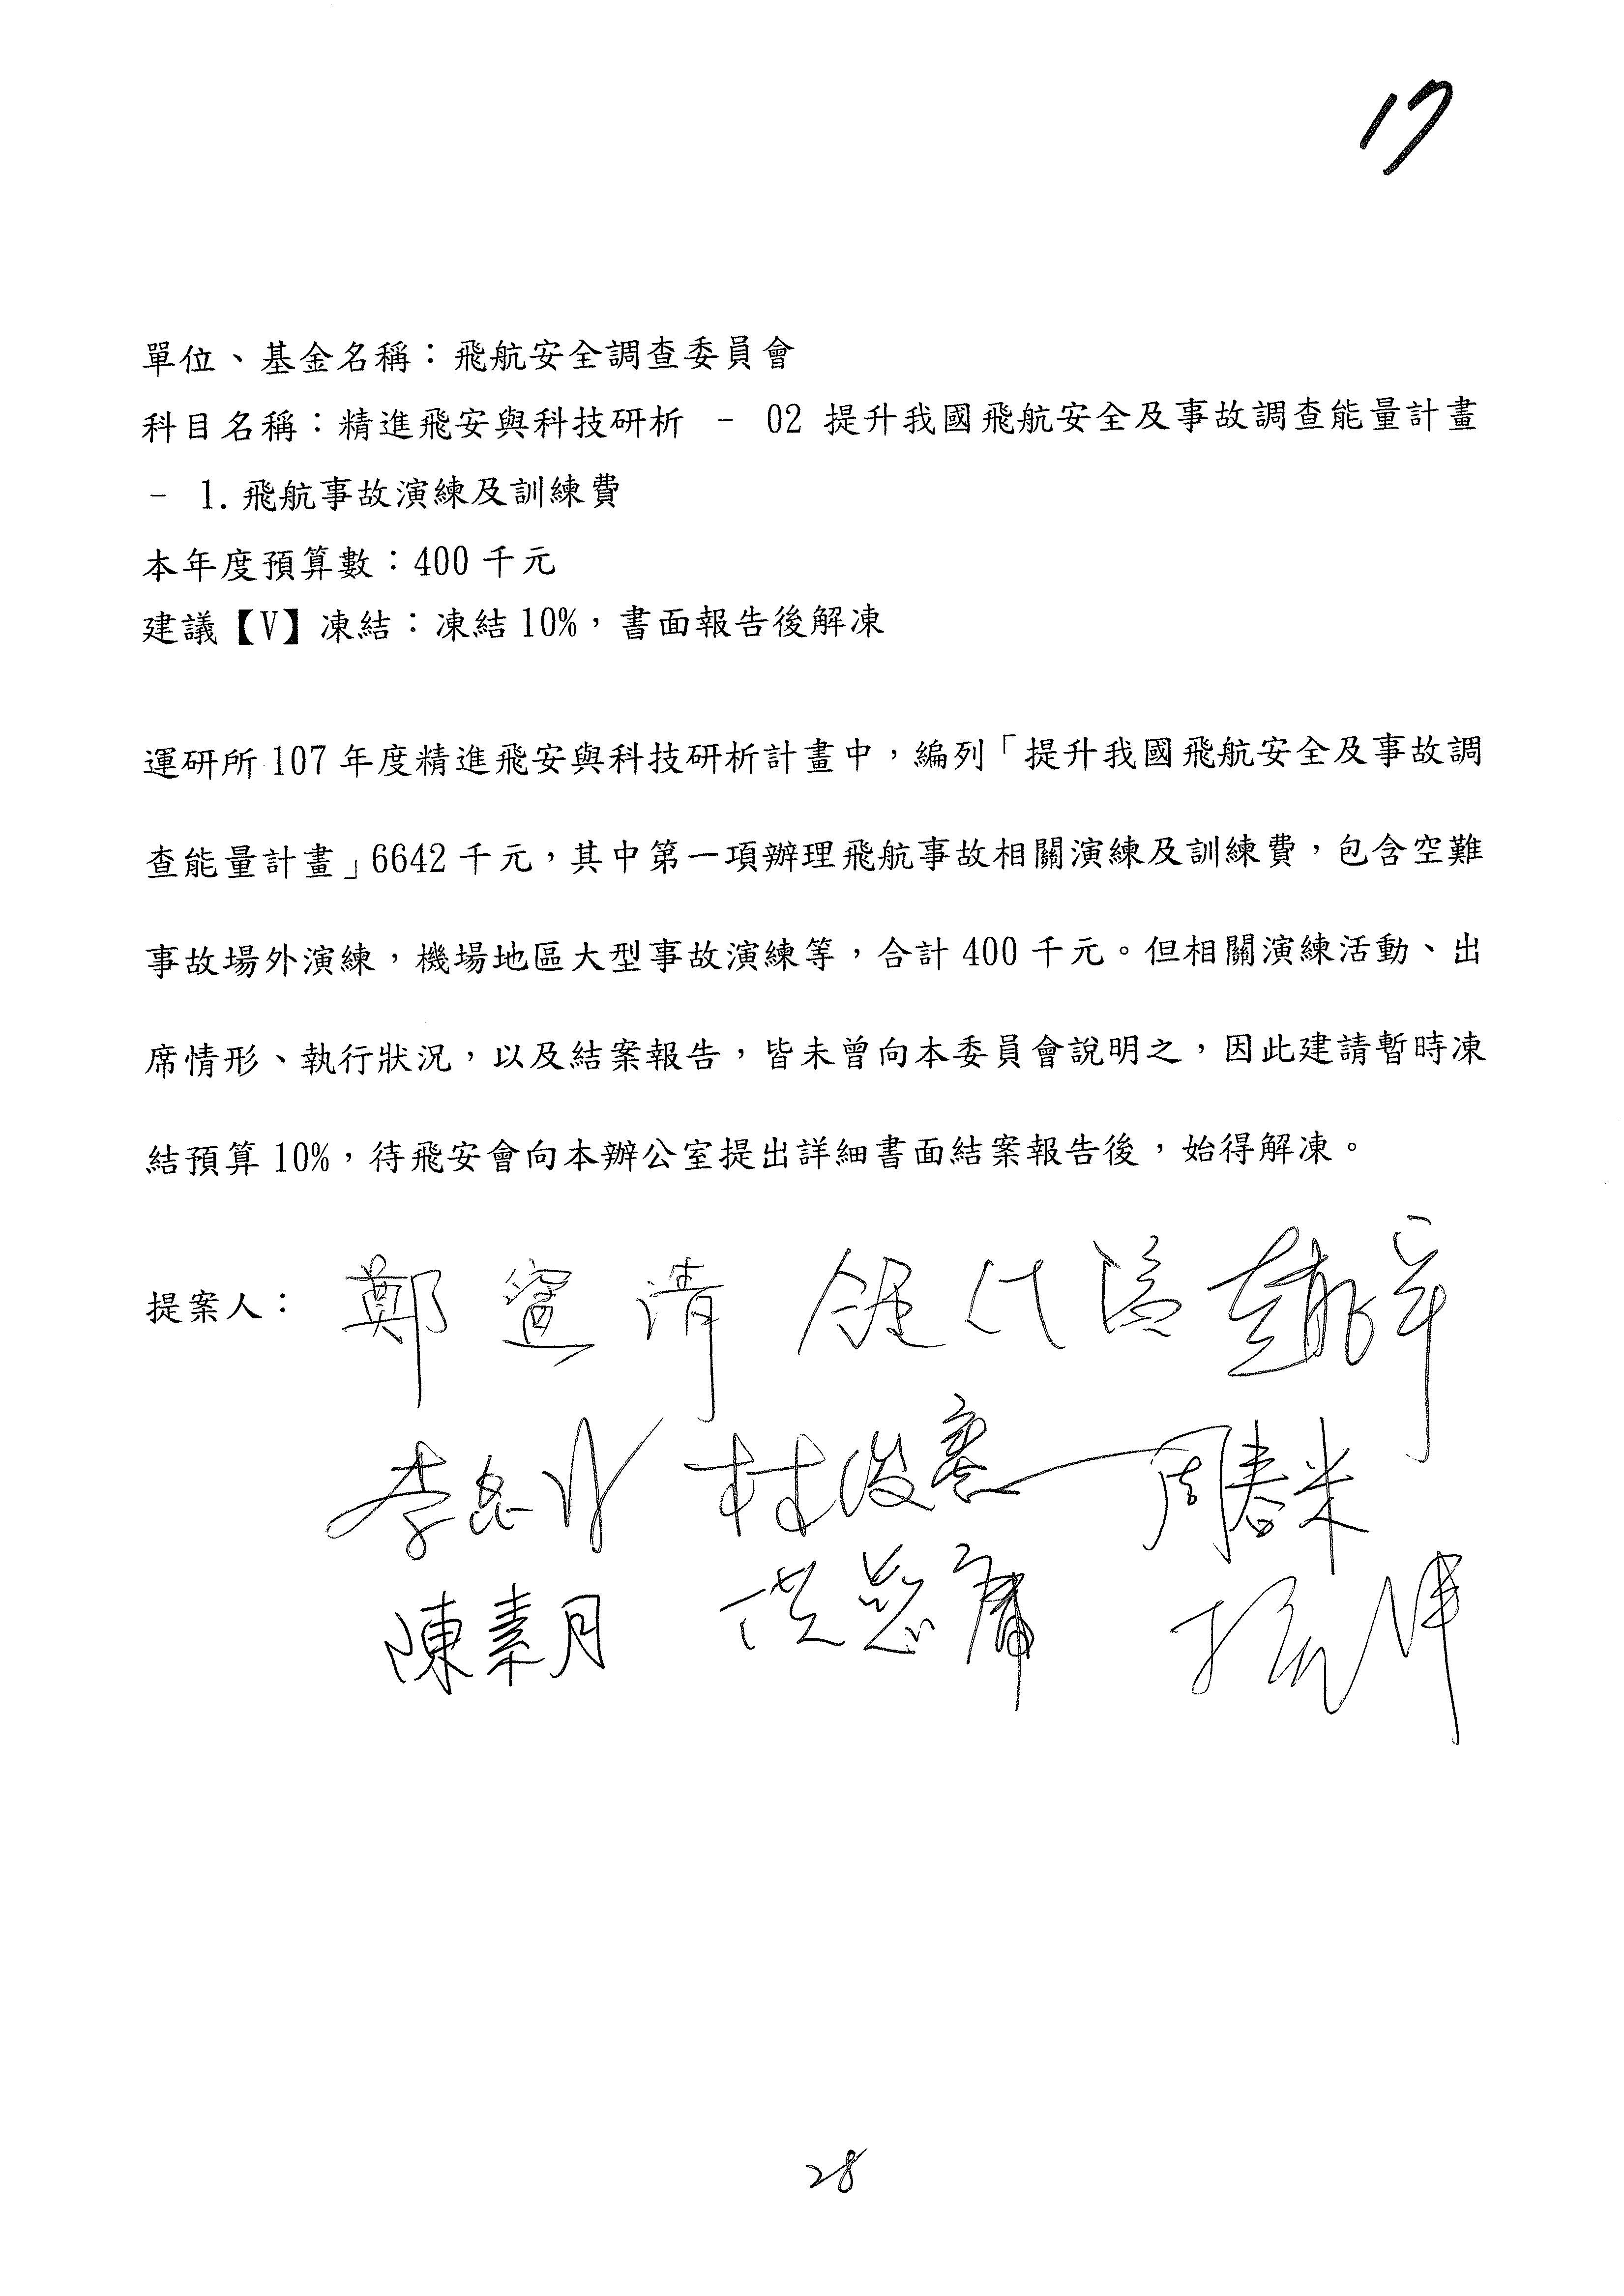 17
單位、基金名稱：飛航安全調查委員會
科目名稱：精進飛安與科技研析 – 02 提升我國飛航安全及事故調查能量計畫
– 1. 飛航事故演練及訓練費
本年度預算數：400 千元
建議【V】凍結：凍結 10%，書面報告後解凍
運研所 107 年度精進飛安與科技研析計畫中，編列「提升我國飛航安全及事故調
查能量計畫」6642 千元，其中第一項辦理飛航事故相關演練及訓練費，包含空難
事故場外演練，機場地區大型事故演練等，合計 400 千元。但相關演練活動、出
席情形、執行狀況，以及結案報告，皆未曾向本委員會說明之，因此建請暫時凍
結預算 10%，待飛安會向本辦公室提出詳細書面結案報告後，始得解凍。
提案人： 鄭寶清
李昆澤 杜俊憲 周春米
陳素月 洪慈庸
28